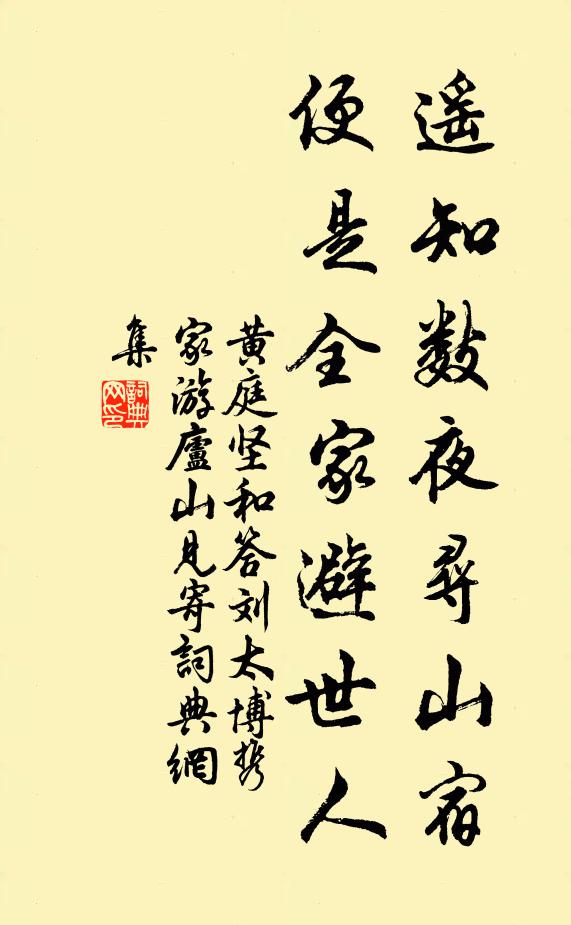 遥知数夜尋山宿
便是全家避世人
黄庭坚和答刘太博携
家游廬山見寄詞典網
集
詞典網印